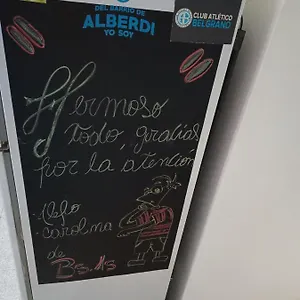 DEL BARRIO DE
ALBERDI
YO SOY
CLUB ATLÉTICO
BELGRANO
Hermoso
todo, gracias
por la atención
carolina
de
Bs. As